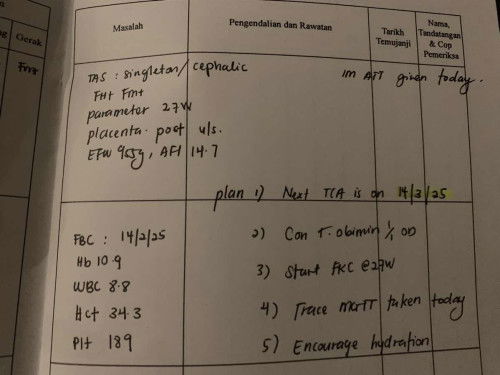 Masalah
Pengendalian dan Rawatan
Tarikh
Temujanji
Nama,
Tandatangan
& Cop
Pemeriksa
Gerak
Fmt
TAS : singleton / cephalic
FHt Fmt
parameter 27W
placenta post u/s.
EFW 955g, AFI 14.7
Im ATT given today.
plan 1) Next TCA is on 14/3/25
2) Con T. obimin 1/1 OD
3) Start FKC @ 27W
4) Trace MGTT taken today
5) Encourage hydration
FBC : 14/2/25
Hb 10.9
WBC 8.8
Hct 34.3
Plt 189